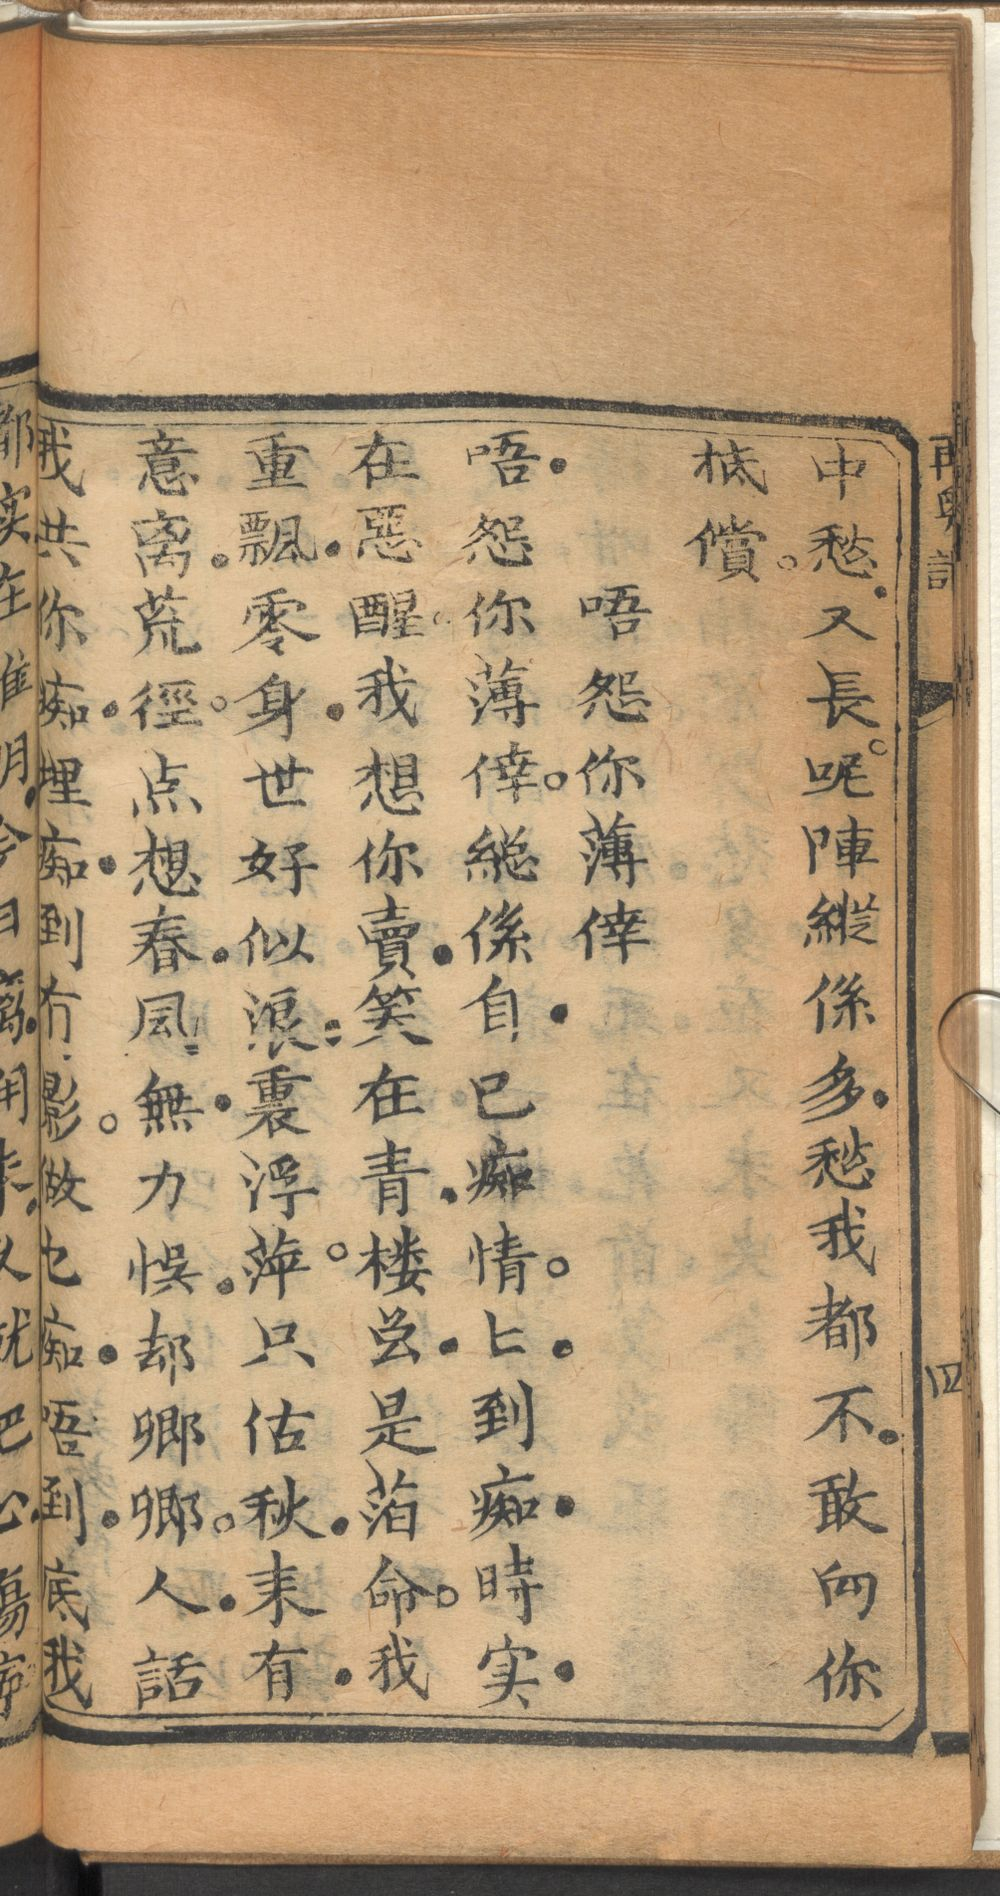 中愁又長。呢陣縱係多愁我都不敢向你
抵償。
唔怨你薄倖
唔怨你薄倖。総係自已痴情。匕到痴時实
在惡醒。我想你賣笑在青楼㒷是萡命。我
重飄零身世好似浪裏浮萍。只估秋来有
意离荒徑。点想春风無力悞却卿卿。人話
我共你痴埋痴到冇影。做乜痴唔到底我
四